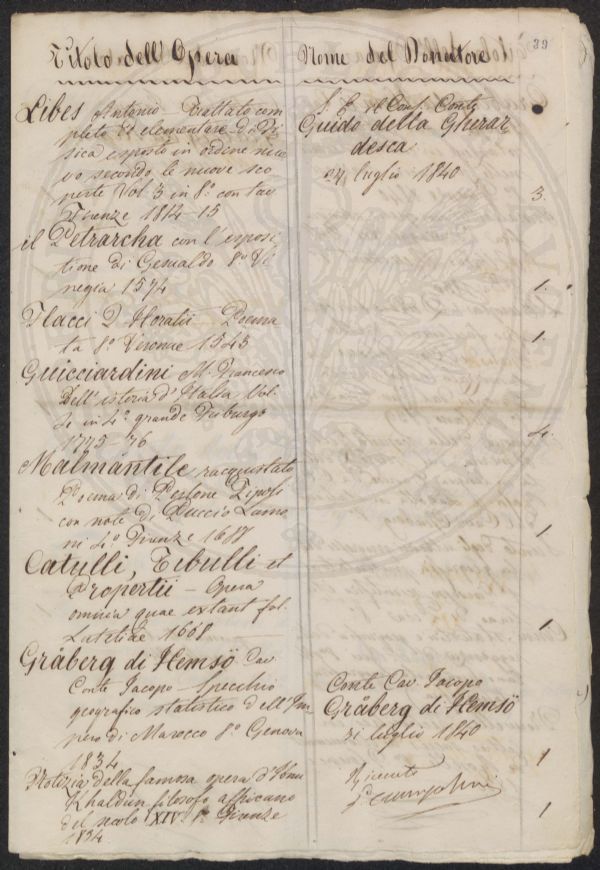 39
Titolo dell'Opera
Nome del Donatore
Libes Antonio - Trattato com
pleto ed elementare di Fi
sica esposto in ordine nuo
vo secondo le nuove sco
perte Vol. 3 in 8.° con tav
Firenze 1814-15
S. E. il Cons. Conte
Guido della Gherar
desca
27 luglio 1840
3.
il Petrarcha con l'esposi
tione di Gesualdo 8.° Vi
negia 1574
1.
Flacci Q Horatii - Poema
ta 8.° Veronae 1543
1.
Guicciardini M. Francesco
Dell'istoria d'Italia Vol.
4. in 4.° grande Friburgo
1775-76
4.
Malmantile racquistato
Poema di Perlone Zipoli
con note di Puccio Lamo
ni 4.° Firenze
1
Catulli, Tibulli et
Propertii - Opera
omnia quae extant fol.
Lutetiae 1608
1
Gråberg di Hemsö Cav.
Conte Jacopo - Specchio
geografico statistico dell'Im
pero di Marocco 8.° Genova
1834
Conte Cav. Jacopo
Gråberg di Hemsö
31 luglio 1840
1
Notizia della famosa opera d'Ibnu
Khaldun filosofo affricano
del secolo XIV. 8.° Firenze
1834.
Ricevuto
1